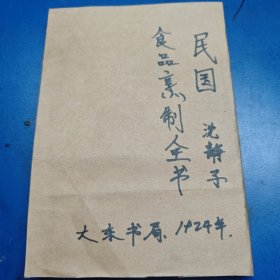 民国
食品烹制全书
大东书局. 1924年.